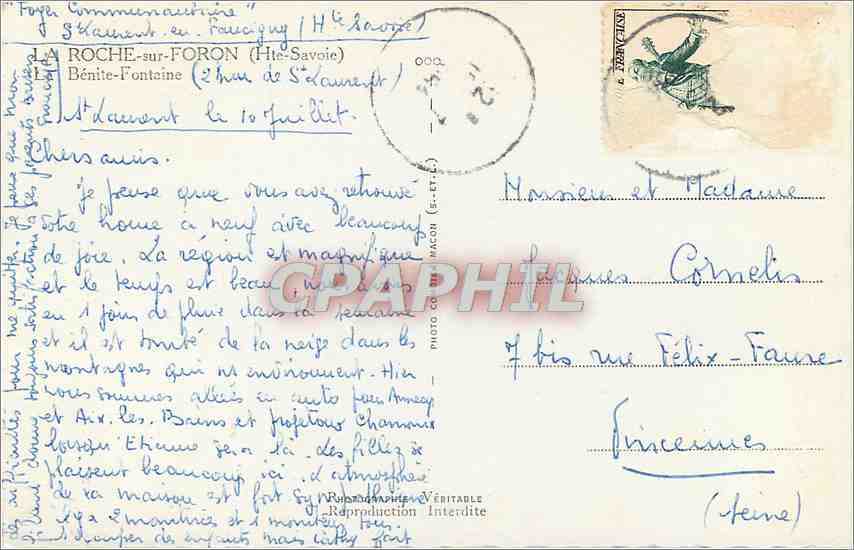 "Foyer Communautaire"
St Laurent. en. Faucigny (Hte Savoie)
LA ROCHE-sur-FORON (Hte-Savoie)
La Bénite-Fontaine (2 km de St Laurent)
St Laurent le 10 Juillet.
Chers amis.
Je pense que vous avez retrouvé
votre home à neuf avec beaucoup
de joie. La région est magnifique
et le temps est beau, nous avons
eu 1 jour de pluie dans la semaine
et il est tombé de la neige dans les
montagnes qui ns environnent. Hier
nous sommes allés en auto pour Annecy
et Aix. les. Bains et projetons Chamonix
lorsqu'Etienne sera là. Les filles se
plaisent beaucoup ici. L'atmosphère
de la maison est fort sympathique
il y a 2 monitrices et 1 moniteur pour
s'occuper des enfants mais Cathy fait
PHOTOGRAPHIE VÉRITABLE
Reproduction Interdite
PHOTO MACON (S.-ET-L.)
FRANÇAISE
CPARPHIL
Monsieur et Madame
Jacques Cornelis
7 bis rue Félix-Faure
Vincennes
(Seine)